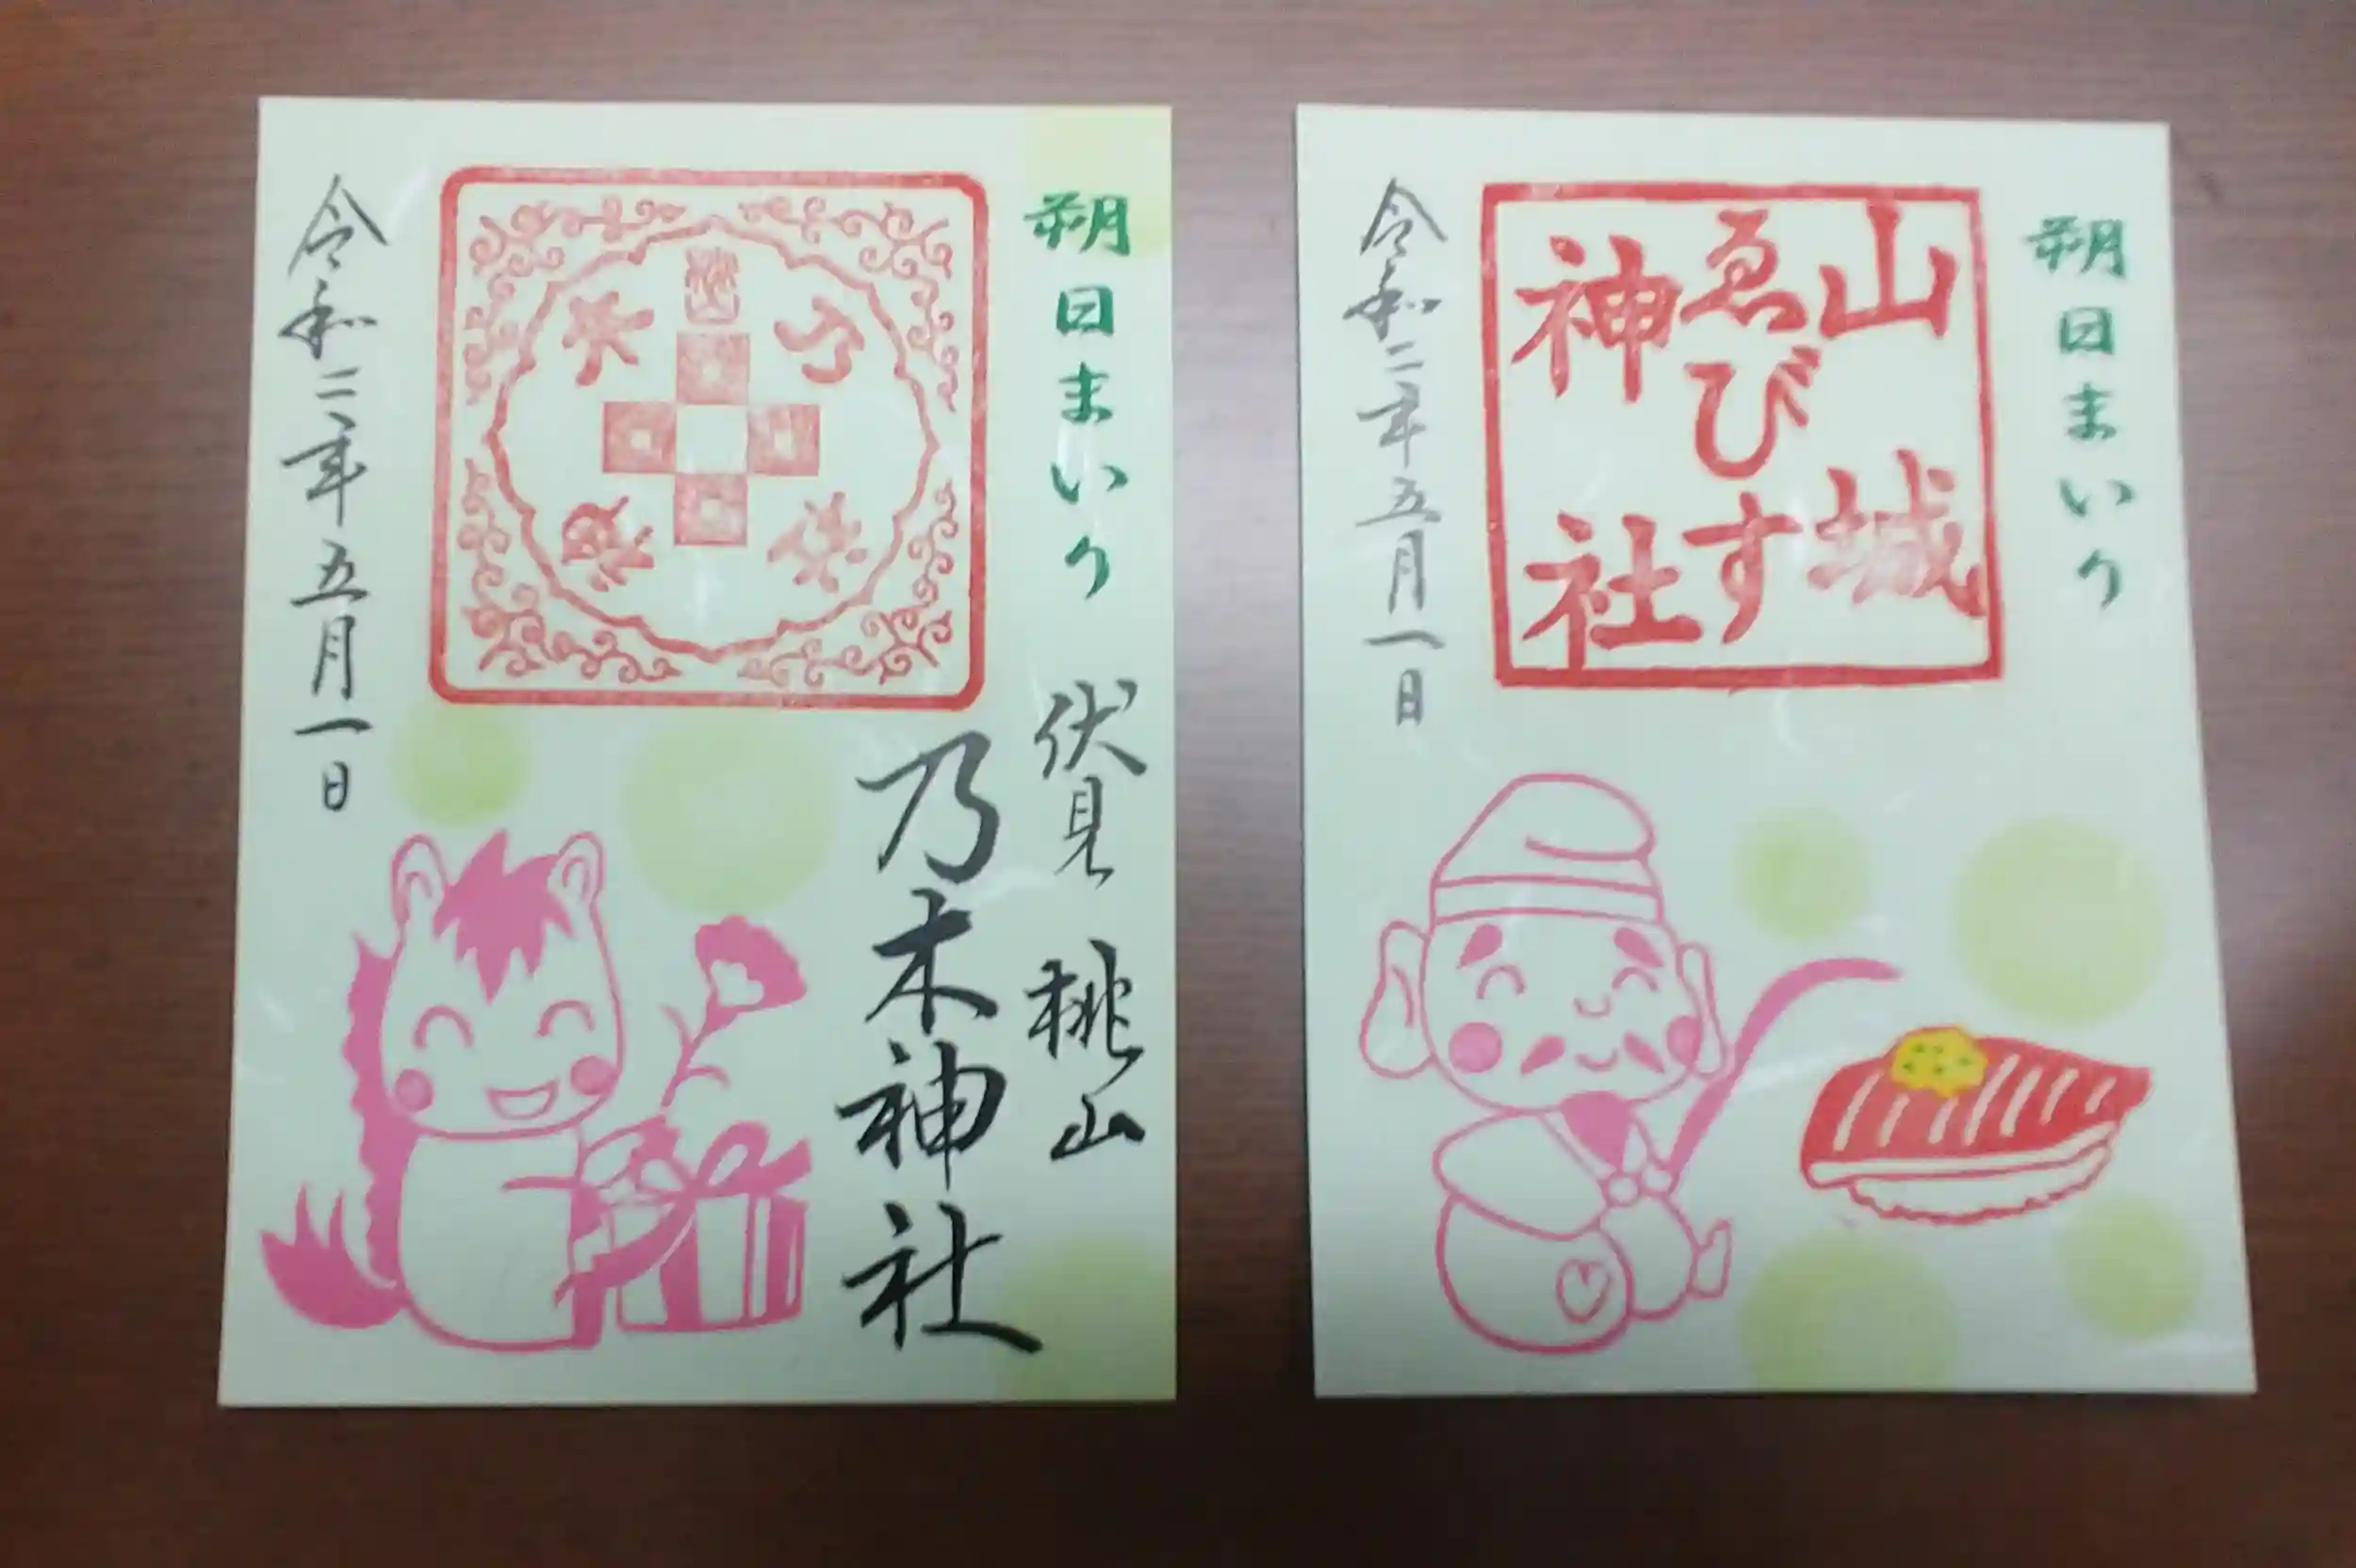 朔日まいり
伏見 桃山
乃木神社
令和二年五月一日
朔日まいり
山城
ゑびす
神社
令和二年五月一日